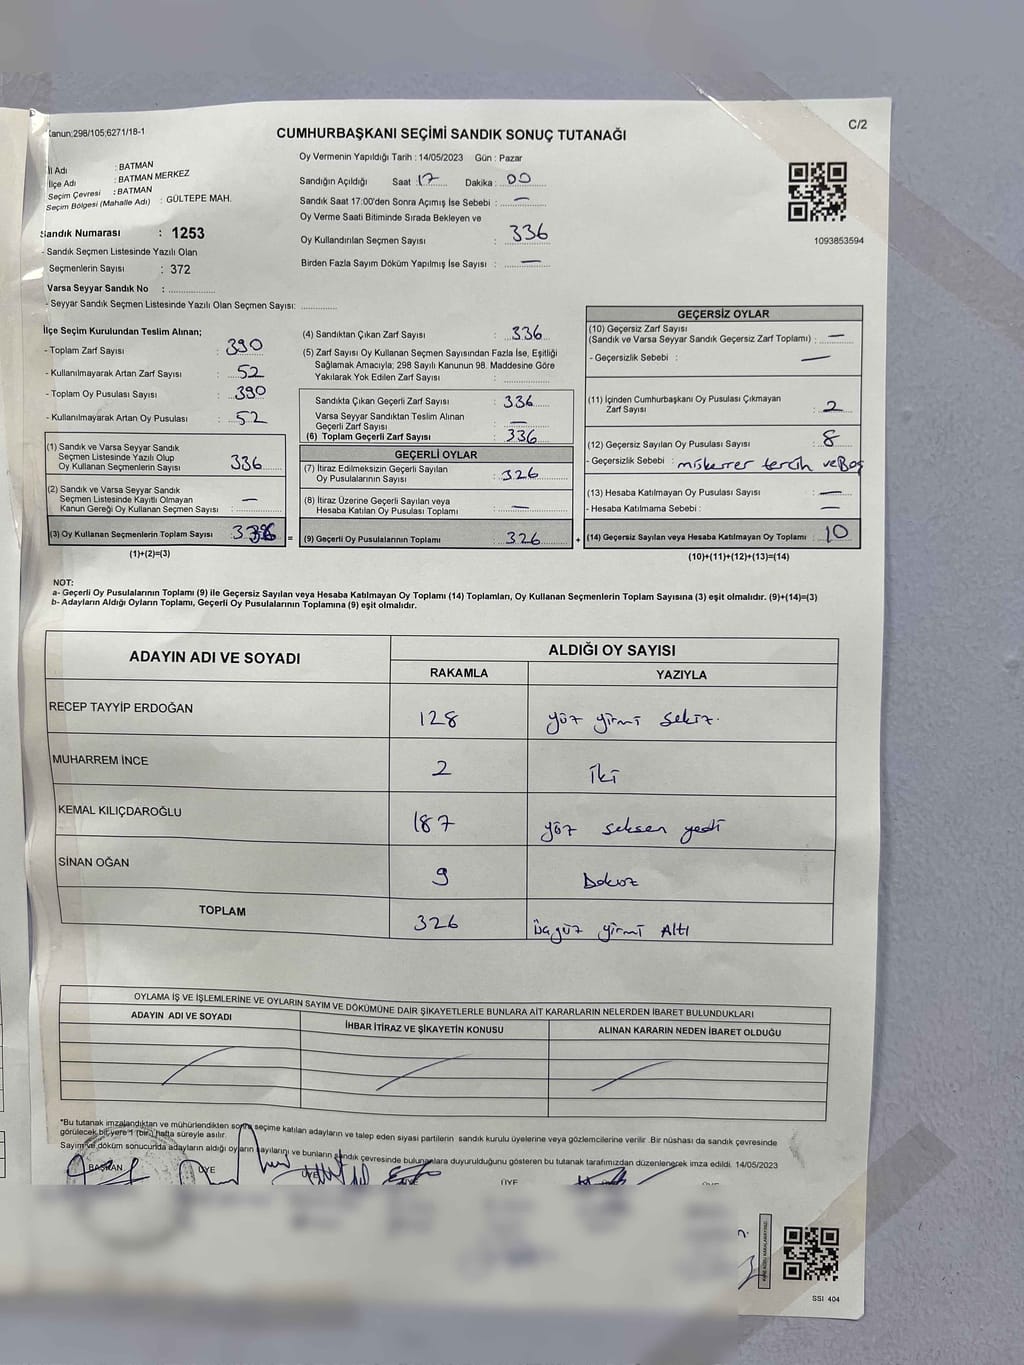 Kanun;298/105;6271/18-1
CUMHURBAŞKANI SEÇİMİ SANDIK SONUÇ TUTANAĞI
C/2
Oy Vermenin Yapıldığı Tarih : 14/05/2023 Gün : Pazar
İl Adı : BATMAN
İlçe Adı : BATMAN MERKEZ
Seçim Çevresi : BATMAN
Seçim Bölgesi (Mahalle Adı) : GÜLTEPE MAH.
Sandığın Açıldığı Saat : 17 Dakika : 00
Sandık Saat 17:00'den Sonra Açımış İse Sebebi : —
Oy Verme Saati Bitiminde Sırada Bekleyen ve
Oy Kullandırılan Seçmen Sayısı : 336
Birden Fazla Sayım Döküm Yapılmış İse Sayısı : —
1093853594
Sandık Numarası : 1253
- Sandık Seçmen Listesinde Yazılı Olan
Seçmenlerin Sayısı : 372
Varsa Seyyar Sandık No :
- Seyyar Sandık Seçmen Listesinde Yazılı Olan Seçmen Sayısı:
İlçe Seçim Kurulundan Teslim Alınan;
- Toplam Zarf Sayısı : 390
- Kullanılmayarak Artan Zarf Sayısı : 52
- Toplam Oy Pusulası Sayısı : 390
- Kullanılmayarak Artan Oy Pusulası : 52
(1) Sandık ve Varsa Seyyar Sandık
Seçmen Listesinde Yazılı Olup
Oy Kullanan Seçmenlerin Sayısı 336
(2) Sandık ve Varsa Seyyar Sandık
Seçmen Listesinde Kayıtlı Olmayan
Kanun Gereği Oy Kullanan Seçmen Sayısı : —
(3) Oy Kullanan Seçmenlerin Toplam Sayısı =
(1)+(2)=(3)
(4) Sandıktan Çıkan Zarf Sayısı : 336
(5) Zarf Sayısı Oy Kullanan Seçmen Sayısından Fazla İse, Eşitliği
Sağlamak Amacıyla; 298 Sayılı Kanunun 98. Maddesine Göre
Yakılarak Yok Edilen Zarf Sayısı :
Sandıkta Çıkan Geçerli Zarf Sayısı : 336
Varsa Seyyar Sandıktan Teslim Alınan
Geçerli Zarf Sayısı : —
(6) Toplam Geçerli Zarf Sayısı : 336
GEÇERLİ OYLAR
(7) İtiraz Edilmeksizin Geçerli Sayılan
Oy Pusulalarının Sayısı : 326
(8) İtiraz Üzerine Geçerli Sayılan veya
Hesaba Katılan Oy Pusulası Toplamı : —
(9) Geçerli Oy Pusulalarının Toplamı : 326 +
GEÇERSİZ OYLAR
(10) Geçersiz Zarf Sayısı
(Sandık ve Varsa Seyyar Sandık Geçersiz Zarf Toplamı) : —
- Geçersizlik Sebebi : —
(11) İçinden Cumhurbaşkanı Oy Pusulası Çıkmayan
Zarf Sayısı : 2
(12) Geçersiz Sayılan Oy Pusulası Sayısı : 8
- Geçersizlik Sebebi : mükerrer tercih ve Boş
(13) Hesaba Katılmayan Oy Pusulası Sayısı : —
- Hesaba Katılmama Sebebi : —
(14) Geçersiz Sayılan veya Hesaba Katılmayan Oy Toplamı : 10
(10)+(11)+(12)+(13)=(14)
NOT:
a- Geçerli Oy Pusulalarının Toplamı (9) ile Geçersiz Sayılan veya Hesaba Katılmayan Oy Toplamı (14) Toplamları, Oy Kullanan Seçmenlerin Toplam Sayısına (3) eşit olmalıdır. (9)+(14)=(3)
b- Adayların Aldığı Oyların Toplamı, Geçerli Oy Pusulalarının Toplamına (9) eşit olmalıdır.
ADAYIN ADI VE SOYADI ALDIĞI OY SAYISI
RAKAMLA YAZIYLA
RECEP TAYYİP ERDOĞAN 128 yüz yirmi sekiz.
MUHARREM İNCE 2 İki
KEMAL KILIÇDAROĞLU 187 yüz seksen yedi
SİNAN OĞAN 9 Dokuz
TOPLAM 326 üçyüz yirmi Altı
OYLAMA İŞ VE İŞLEMLERİNE VE OYLARIN SAYIM VE DÖKÜMÜNE DAİR ŞİKAYETLERLE BUNLARA AİT KARARLARIN NELERDEN İBARET BULUNDUKLARI
ADAYIN ADI VE SOYADI İHBAR İTİRAZ VE ŞİKAYETİN KONUSU ALINAN KARARIN NEDEN İBARET OLDUĞU
*Bu tutanak imzalandıktan ve mühürlendikten sonra seçime katılan adayların ve talep eden siyasi partilerin sandık kurulu üyelerine veya gözlemcilerine verilir. Bir nüshası da sandık çevresinde
görülecek bir yere 1 (bir) hafta süreyle asılır.
Sayım ve döküm sonucunda adayların aldığı oyların sayılarını ve bunların sandık çevresinde bulunanlara duyurulduğunu gösteren bu tutanak tarafımızdan düzenlenerek imza edildi. 14/05/2023
BAŞKAN ÜYE ÜYE ÜYE ÜYE ÜYE
SSI 404